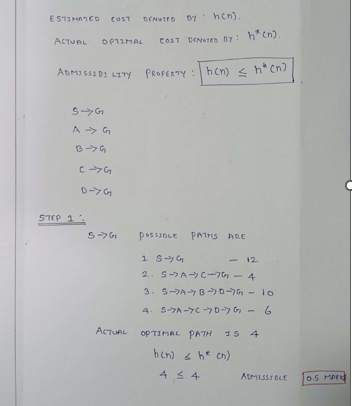 ESTIMATED COST DENOTED BY : h(n).
ACTUAL OPTIMAL COST DENOTED BY : h*(n).
ADMISSIBILITY PROPERTY : h(n) ≤ h*(n)
S→G
A→G
B→G
C→G
D→G
STEP 1 :
S→G POSSIBLE PATHS ARE
1. S→G – 12
2. S→A→C→G – 4
3. S→A→B→D→G – 10
4. S→A→C→D→G – 6
ACTUAL OPTIMAL PATH IS 4
h(n) ≤ h*(n)
4 ≤ 4 ADMISSIBLE 0.5 MARKS